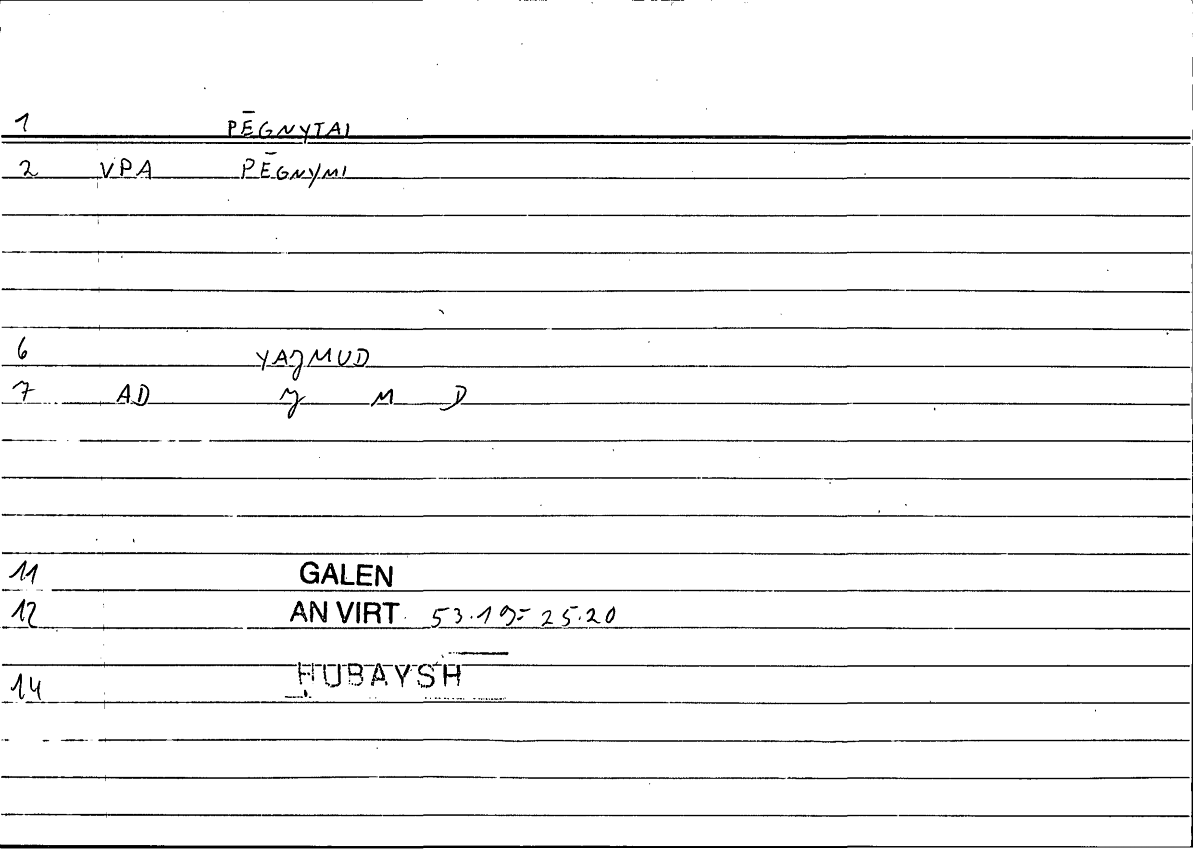 1 PĒGNYTAI
2 VPA PĒGNYMI
6 YAJMUD
7 AD J M D
11 GALEN
12 AN VIRT 53.19 = 25.20
14 HUBAYSH